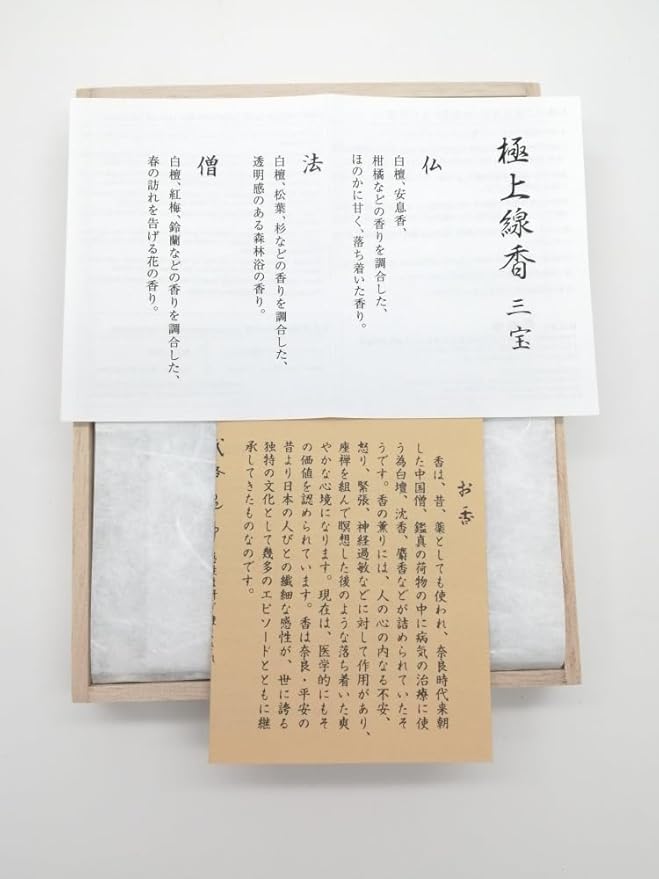 極上線香 三宝
仏
白檀、安息香、
柑橘などの香りを調合した、
ほのかに甘く、落ち着いた香り。
法
白檀、松葉、杉などの香りを調合した、
透明感のある森林浴の香り。
僧
白檀、紅梅、鈴蘭などの香りを調合した、
春の訪れを告げる花の香り。
お香
香は、昔、薬としても使われ、奈良時代来朝
した中国僧、鑑真の荷物の中に病気の治療に使
う為白壇、沈香、麝香などが詰められていたそ
うです。香の薫りには、人の心の内なる不安、
怒り、緊張、神経過敏などに対して作用があり、
座禅を組んで瞑想した後のような落ち着いた爽
やかな心境になります。現在は、医学的にもそ
の価値を認められています。香は奈良・平安の
昔より日本の人びとの繊細な感性が、世に誇る
独特の文化として幾多のエピソードとともに継
承してきたものなのです。